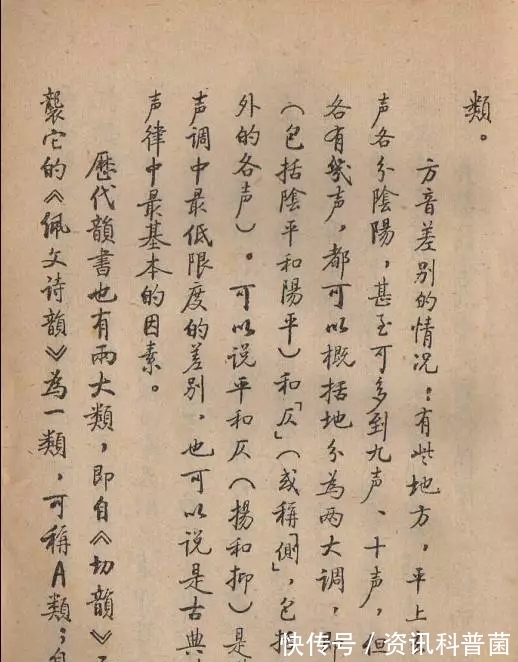 類。
方音差别的情况：有些地方，平上
声各分陰陽，甚至可多到九声、十声，但
各有幾声，都可以概括地分為两大調，即
（包括陰平和陽平）和「仄」（或稱「側」，包括
外的各声）。可以说平和仄（揚和抑）是
声调中最低限度的差别，也可以说是古典
声律中最基本的因素。
歷代韻書也有兩大類，即自《切韻》
襲它的《佩文诗韻》為一類，可稱A類；
快传号 / 资讯科普菌